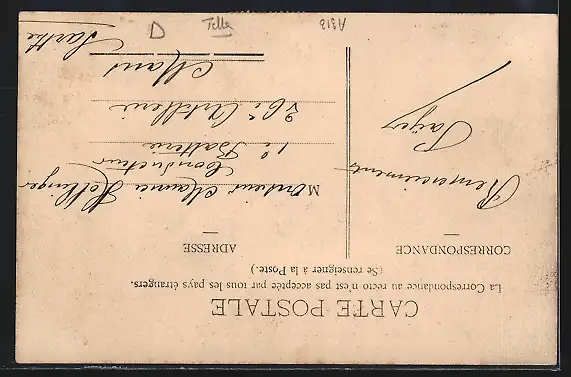 CARTE POSTALE
La Correspondance au recto n'est pas acceptée par tous les pays étrangers.
(Se renseigner à la Poste.)
CORRESPONDANCE
ADRESSE
Remerciements
Monsieur Maurice
Conducteur
1e Batterie
26e Artillerie
Mans
Sarthe
D
A318